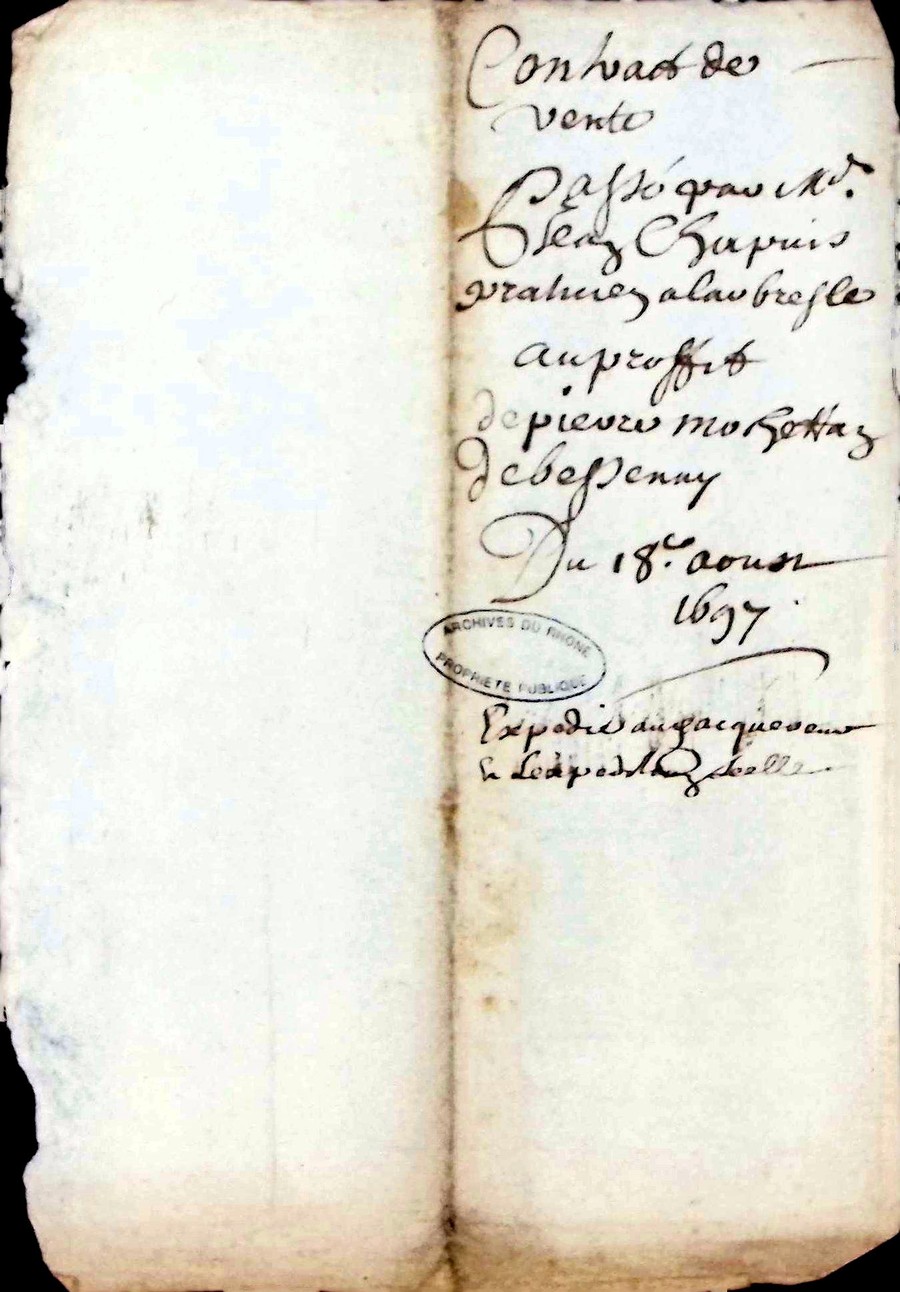 Contract de
vente
Passé par Md.
Jean Chapuis
praticien a larbresle
au proffit
de pierre mochettan
de bessenay
Du 18e. aoust
1697
ARCHIVES DU RHONE
PROPRIETE PUBLIQUE
Expedie au jacquereur
seelle